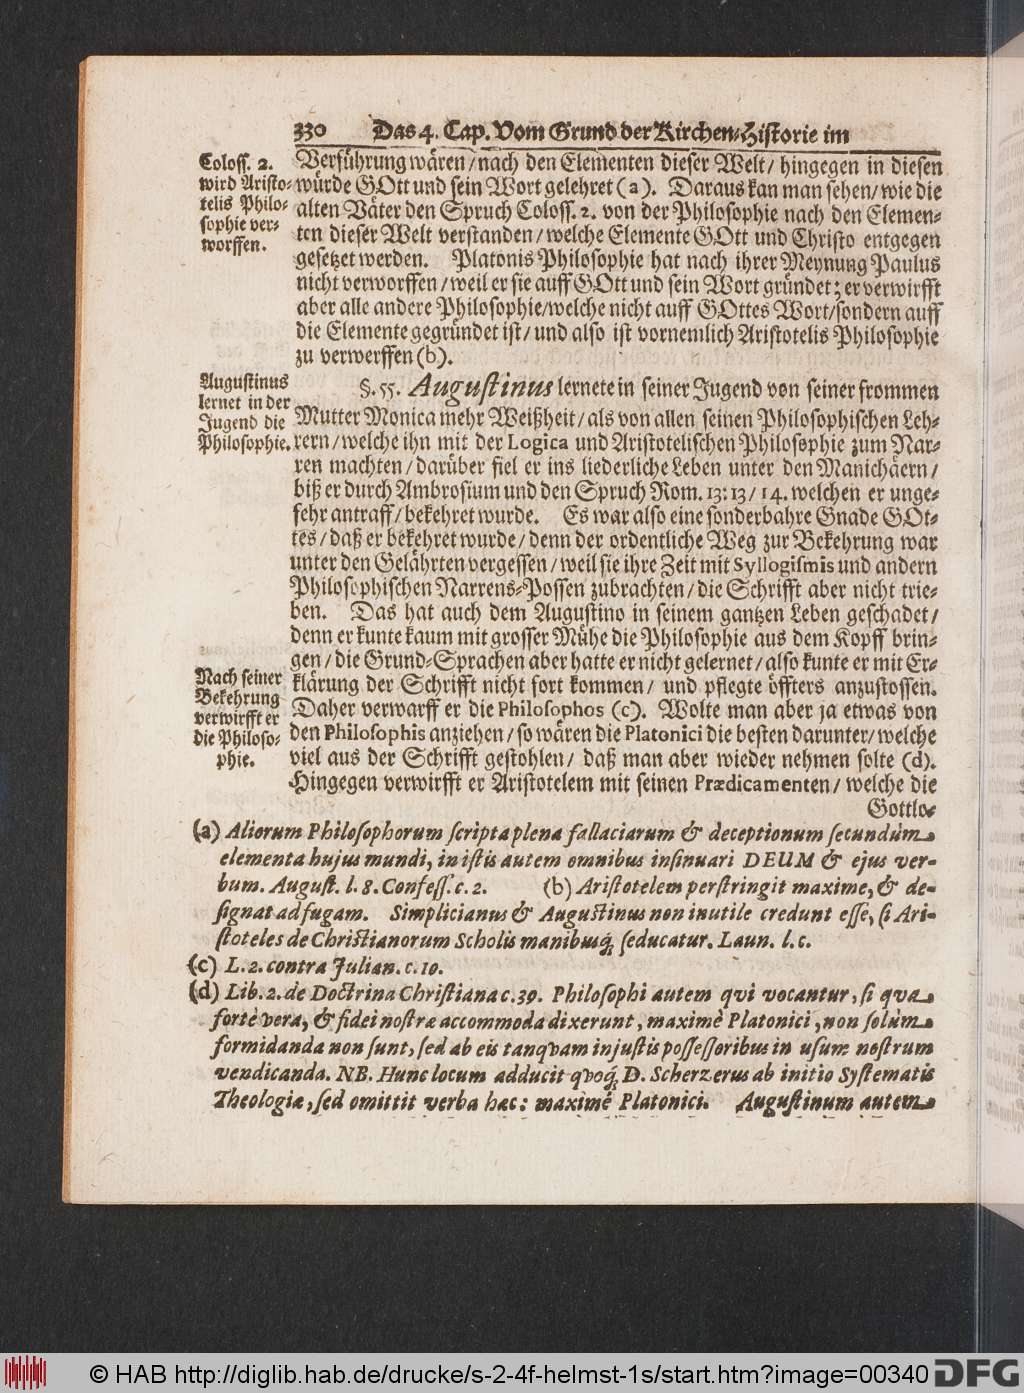 330 Das 4. Cap. Vom Grund der Kirchen-Historie im
Coloss. 2.
wird Aristo-
telis Philo-
sophie ver-
worffen.
Verführung wären / nach den Elementen dieser Welt / hingegen in diesen
würde GOtt und sein Wort gelehret (a). Daraus kan man sehen / wie die
alten Väter den Spruch Coloss. 2. von der Philosophie nach den Elemen-
ten dieser Welt verstanden / welche Elemente GOtt und Christo entgegen
gesetzet werden. Platonis Philosophie hat nach ihrer Meynung Paulus
nicht verworffen / weil er sie auff GOtt und sein Wort gründet; er verwirfft
aber alle andere Philosophie / welche nicht auff GOttes Wort / sondern auff
die Elemente gegründet ist / und also ist vornemlich Aristotelis Philosophie
zu verwerffen (b).
Augustinus
lernet in der
Jugend die
Philosophie.
§. 55. Augustinus lernete in seiner Jugend von seiner frommen
Mutter Monica mehr Weißheit / als von allen seinen Philosophischen Leh-
rern / welche ihn mit der Logica und Aristotelischen Philosophie zum Nar-
ren machten / darüber fiel er ins liederliche Leben unter den Manichäern /
biß er durch Ambrosium und den Spruch Rom. 13: 13 / 14. welchen er unge-
fehr antraff / bekehret wurde. Es war also eine sonderbahre Gnade GOt-
tes / daß er bekehret wurde / denn der ordentliche Weg zur Bekehrung war
unter den Gelährten vergessen / weil sie ihre Zeit mit Syllogismis und andern
Philosophischen Narrens-Possen zubrachten / die Schrifft aber nicht trie-
ben. Das hat auch dem Augustino in seinem gantzen Leben geschadet /
denn er kunte kaum mit grosser Mühe die Philosophie aus dem Kopff brin-
gen / die Grund-Sprachen aber hatte er nicht gelernet / also kunte er mit Er-
klärung der Schrifft nicht fort kommen / und pflegte öffters anzustossen.
Daher verwarff er die Philosophos (c). Wolte man aber ja etwas von
den Philosophis anziehen / so wären die Platonici die besten darunter / welche
viel aus der Schrifft gestohlen / daß man aber wieder nehmen solte (d).
Hingegen verwirfft er Aristotelem mit seinen Prædicamenten / welche die
Gottlo-
Nach seiner
Bekehrung
verwirfft er
die Philoso-
phie.
(a) Aliorum Philosophorum scripta plena fallaciarum & deceptionum secundùm
elementa hujus mundi, in istis autem omnibus insinuari DEUM & ejus ver-
bum. August. l. 8. Confess. c. 2. (b) Aristotelem perstringit maxime, & de-
signat ad fugam. Simplicianus & Augustinus non inutile credunt esse, si Ari-
stoteles de Christianorum Scholis manibusq́; seducatur. Laun. l. c.
(c) L. 2. contra Julian. c. 10.
(d) Lib. 2. de Doctrina Christiana c. 39. Philosophi autem qvi vocantur, si qva
fortè vera, & fidei nostræ accommoda dixerunt, maximè Platonici, non solùm
formidanda non sunt, sed ab eis tanqvam injustis possessoribus in usum nostrum
vendicanda. NB. Hunc locum adducit qvoq́; D. Scherzerus ab initio Systematis
Theologiæ, sed omittit verba hæc: maximè Platonici. Augustinum autem
© HAB http://diglib.hab.de/drucke/s-2-4f-helmst-1s/start.htm?image=00340 DFG